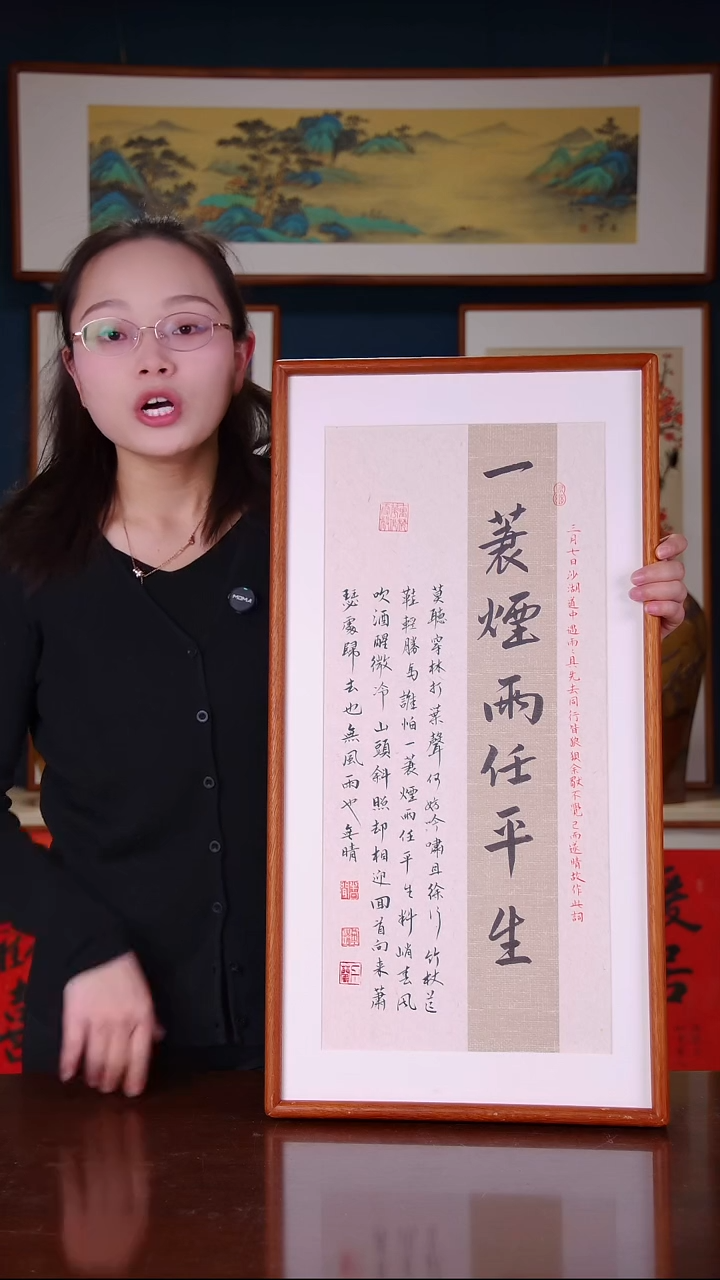 三月七日沙湖道中遇雨〻具先去同行皆狼狽余獨不覺已而遂晴故作此詞
一蓑煙雨任平生
莫聽穿林打葉聲何妨吟嘯且徐行竹杖芒
鞋輕勝馬誰怕一蓑煙雨任平生料峭春風
吹酒醒微冷山頭斜照却相迎回首向来蕭
瑟處歸去也無風雨也無晴
MOMA